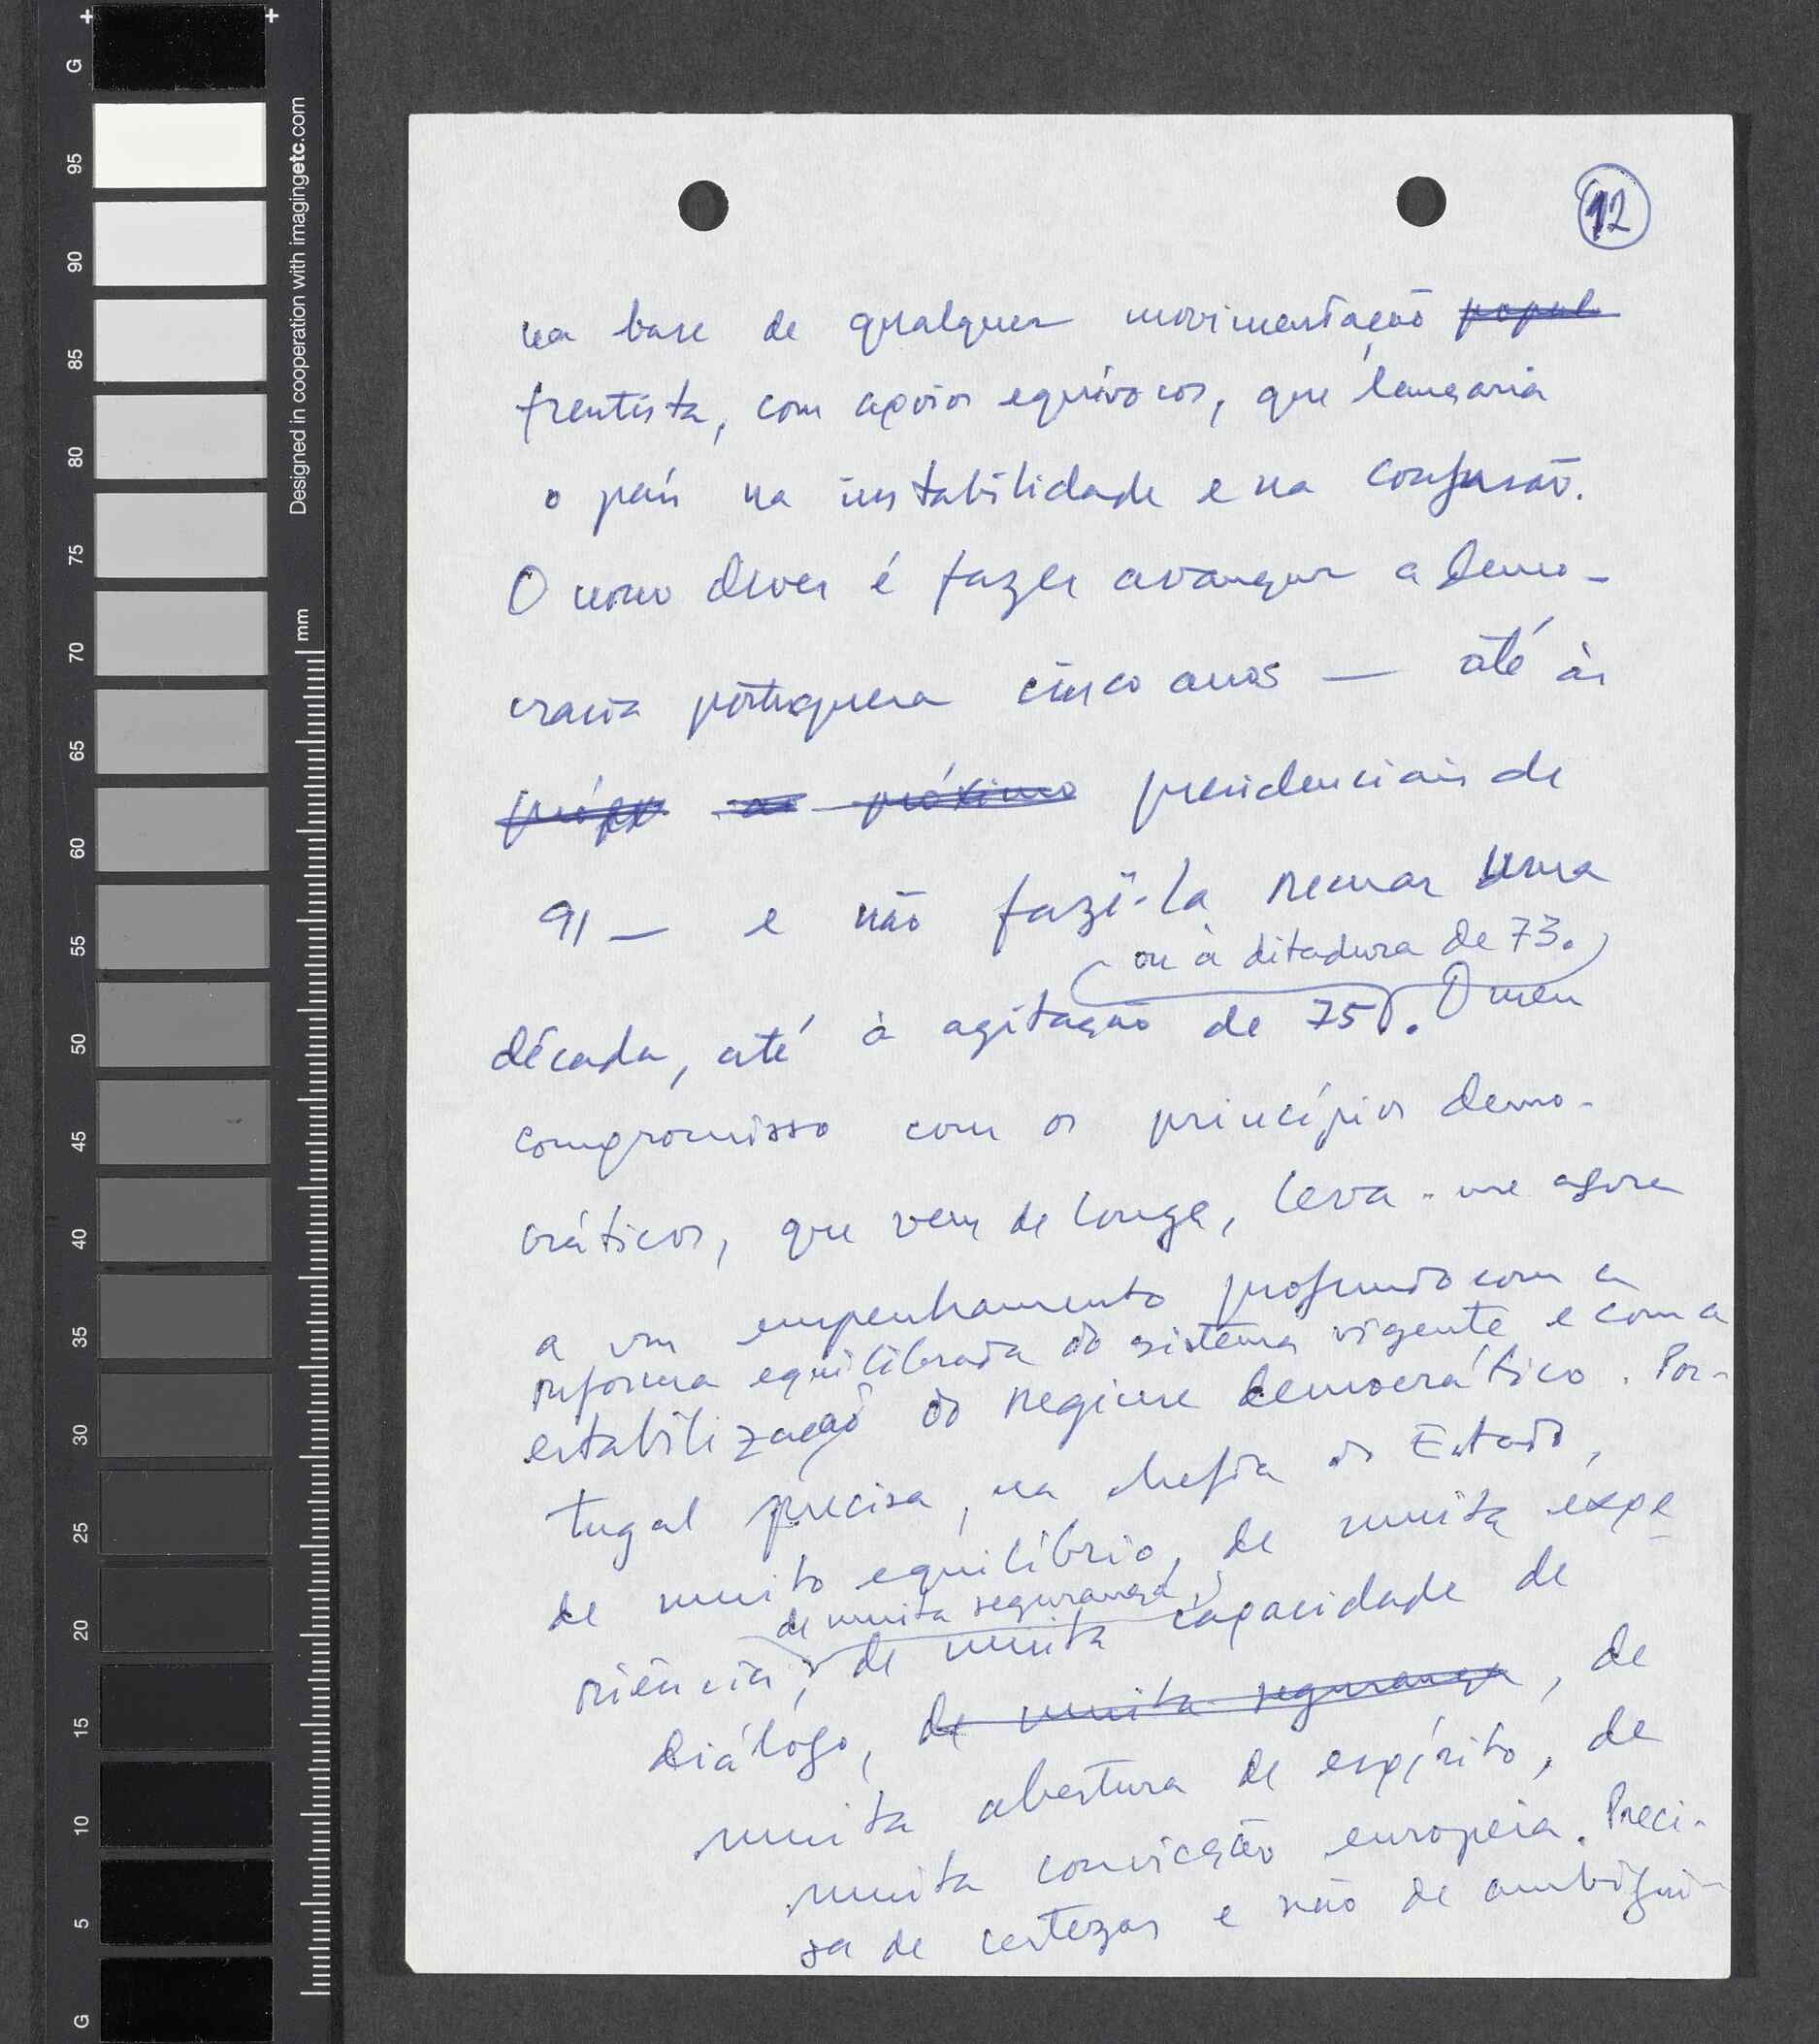 12
na base de qualquer movimentação popul
frentista, com apoios equívocos, que lançaria
o país na instabilidade e na confusão.
O nosso dever é fazer avançar a demo-
cracia portuguesa cinco anos — até às
próxi as próximas presidenciais de
91 — e não fazê-la recuar uma
ou à ditadura de 73.
década, até à agitação de 75. O meu
compromisso com os princípios demo-
cráticos, que vem de longe, leva-me agora
a um empenhamento profundo com a
reforma equilibrada do sistema vigente e com a
estabilização do regime democrático. Por-
tugal precisa, na chefia do Estado,
de muito equilíbrio, de muita expe
de muita segurança,
riência, de muita capacidade de
diálogo, de muita segurança, de
muita abertura de espírito, de
muita convicção europeia. Preci-
sa de certezas e não de ambigui-
G
95
90
85
80
75
70
65
60
55
50
45
40
35
30
25
20
15
10
5
G
Designed in cooperation with imagingetc.com
mm